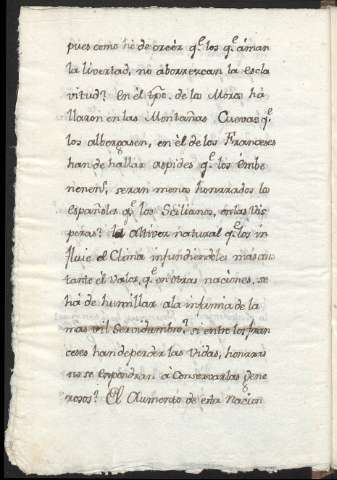 pues como hè de creèr q.^e los q.^e àman
la livertad, no aborrezcan la escla
vitud? en èl tpo. de los Moros hà
llaron en las Montañas Cuevas q.^e
los albergasen, en èl de los Franceses
han de hallar aspides q.^e los embe
nenen, seran menos honrrados los
españoles q.^e los Sicilianos, en las Vis
peras? la altivez natural q.^e los in
fluie el Clima infundiendoles mas cons
tante el valor, q.^e en otras naciones, se
hà de humillar a la infamia de la
mas vil Servidumbre? si entre los fran
ceses han de perder las vidas, honrras
no se expondran à Conservarlas gene
rosos? El Aumento de esta Nacion